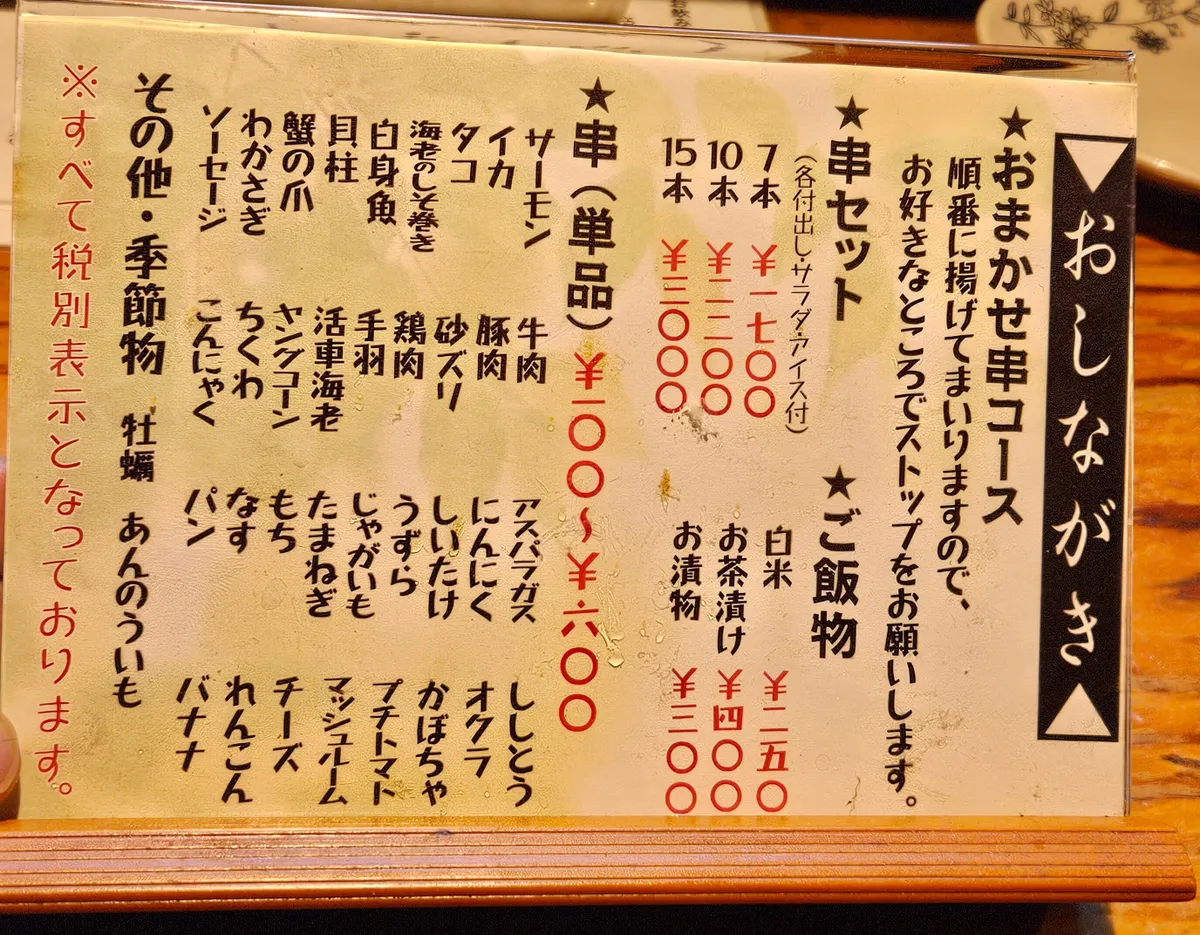 おしながき
★おまかせ串コース
順番に揚げてまいりますので、
お好きなところでストップをお願いします。
★串セット
(各付出し・サラダ・アイス付)
7本 ¥一七〇〇
10本 ¥二二〇〇
15本 ¥三〇〇〇
★ご飯物
白米 ¥二五〇
お茶漬け ¥四〇〇
お漬物 ¥三〇〇
★串(単品)¥一〇〇〜¥六〇〇
サーモン
イカ
タコ
海老のしそ巻き
白身魚
貝柱
蟹の爪
わかさぎ
ソーセージ
牛肉
豚肉
砂ズリ
鶏肉
手羽
活車海老
ヤングコーン
ちくわ
こんにゃく
アスパラガス
にんにく
しいたけ
うずら
じゃがいも
たまねぎ
もち
なす
パン
ししとう
オクラ
かぼちゃ
プチトマト
マッシュルーム
チーズ
れんこん
バナナ
その他・季節物 牡蠣 あんのういも
※すべて税別表示となっております。